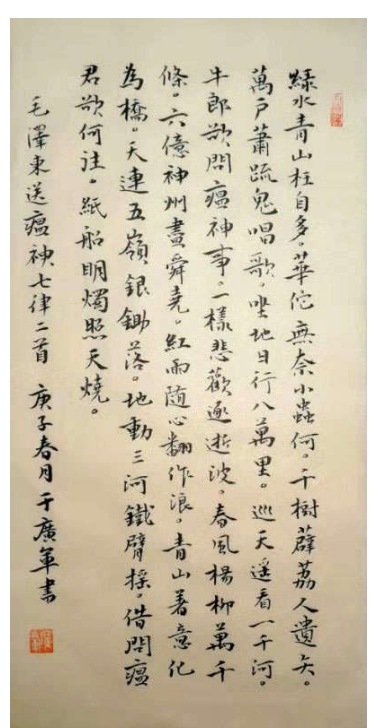 綠水青山枉自多。華佗無奈小蟲何。千樹薜荔人遺矢。
萬戶蕭疏鬼唱歌。坐地日行八萬里。巡天遙看一千河。
牛郎欲問瘟神事。一樣悲歡逐逝波。春風楊柳萬千
條。六億神州盡舜堯。紅雨隨心翻作浪。青山著意化
為橋。天連五嶺銀鋤落。地動三河鐵臂搖。借問瘟
君欲何往。紙船明燭照天燒。
毛澤東送瘟神七律二首 庚子春月于廣軍書